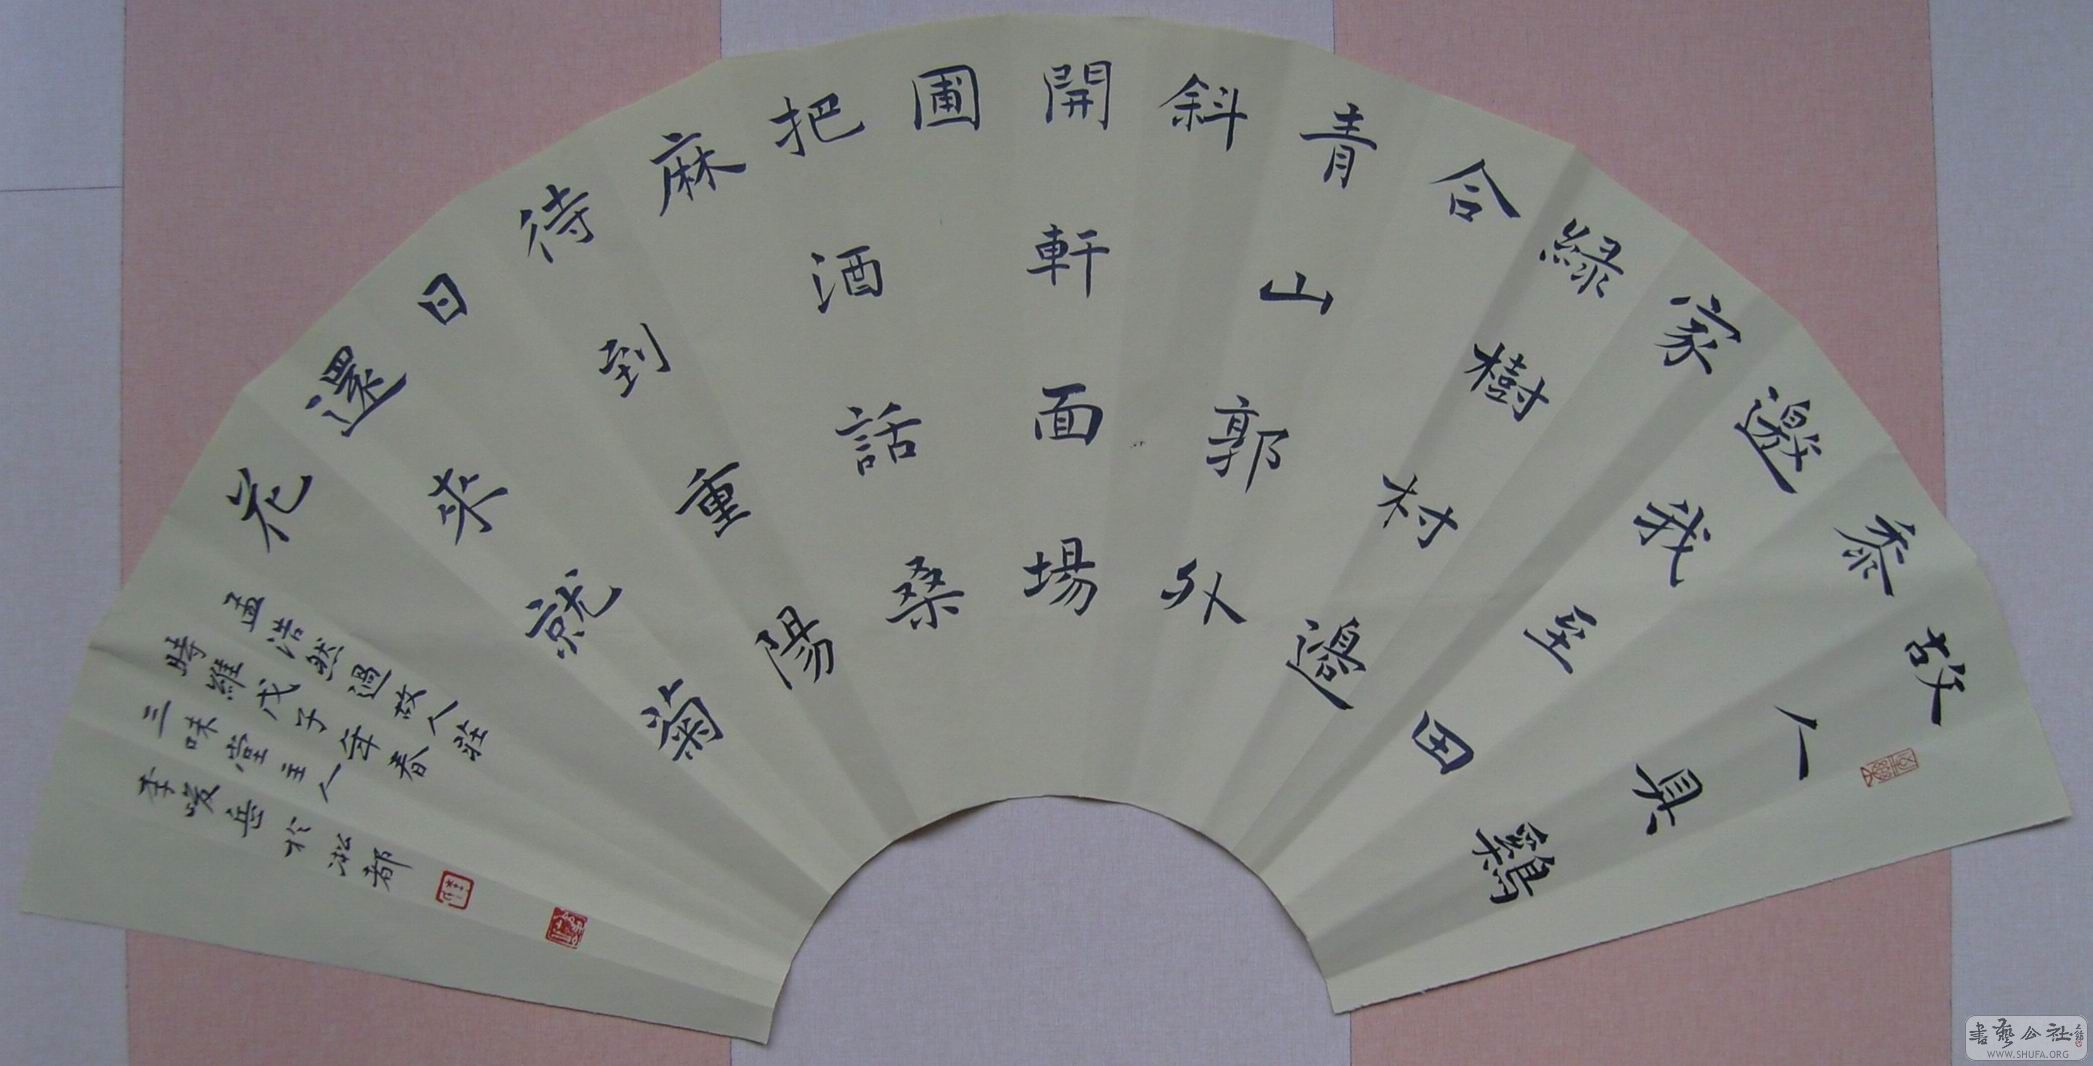 故人具鷄
黍
邀我至田
家
綠樹村邊
合
青山郭外
斜
開軒面場
圃
把酒話桑
麻
待到重陽
日
還來就菊
花
孟浩然過故人莊
時維戊子年春
三味堂主人
李岳於淞都
書藝公社
WWW.SHUFA.ORG